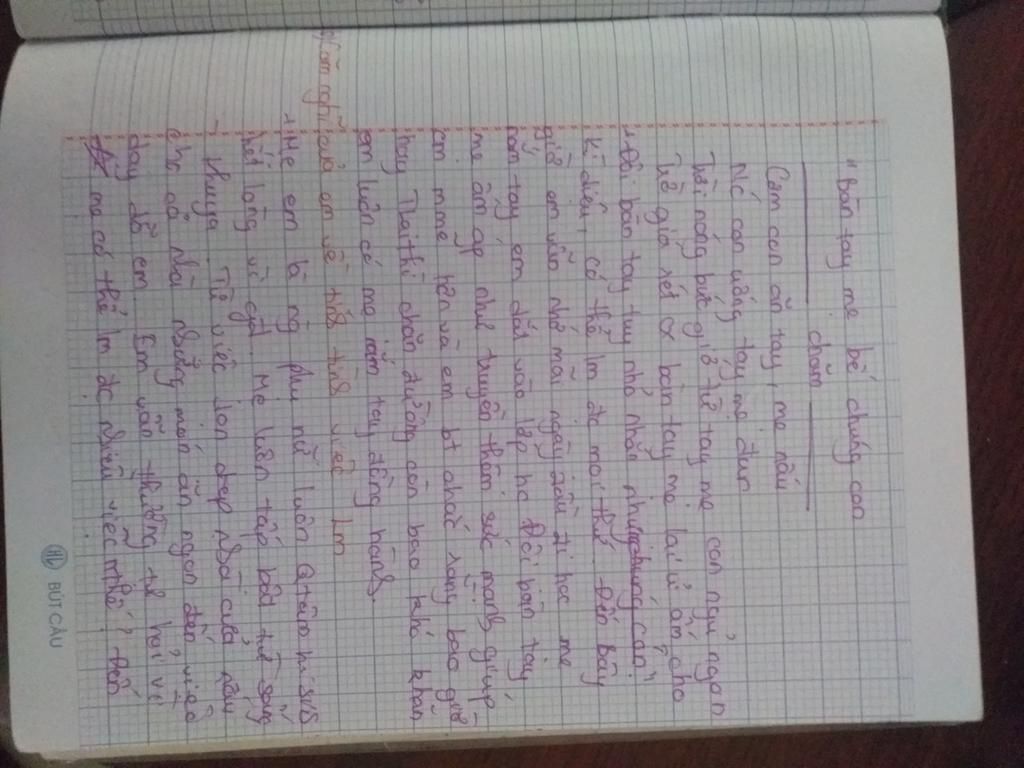 "Bàn tay mẹ bế chúng con
chăm
Cơm con ăn tay mẹ nấu
Nc con uống tay mẹ đun
Trời nóng bức gió từ tay mẹ con ngủ ngon
Trời giá rét cx bàn tay mẹ lại ủ ấm cho
chúng con"
Đôi bàn tay tuy nhỏ nhắn nhưng
kì diệu, có thể lm đc mọi thứ. Đến bây
giờ em vẫn nhớ mãi ngày đầu đi học mẹ
nắm tay em dắt vào lớp học. Đôi bàn tay
mẹ ấm áp như truyền thêm sức mạnh giúp
em mạnh mẽ hơn và em bt chắc rằng bao giờ
hay Dài thì chặn đường còn bao khó khăn
em luôn có mẹ nắm tay đồng hành.
nghĩ của em về tính tình việc lm
Mẹ em là ng phụ nữ luôn qtâm hi sinh
hết lòng vì gđ. Mẹ luôn tấp bật từ sáng
khuya. Từ việc dọn dẹp nhà cửa nấu
cho cả nhà những món ăn ngon đến việc
dạy dỗ em. Em vẫn thường tự hỏi vì
mẹ có thể lm đc nhiều việc như thế? Đến
BÚT CẦU